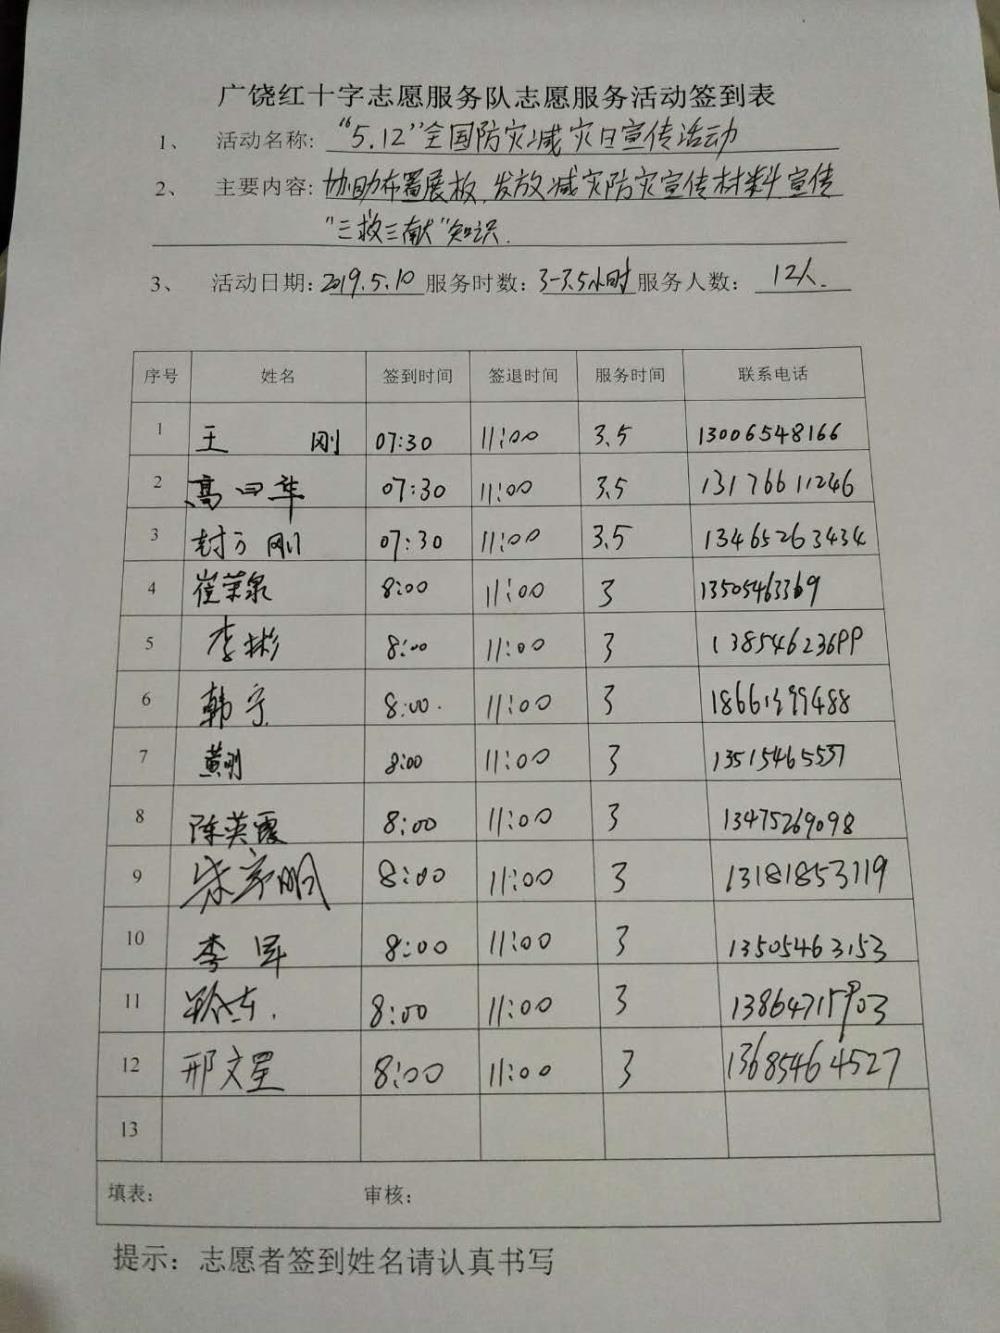 广饶红十字志愿服务队志愿服务活动签到表
1、 活动名称: “5.12”全国防灾减灾日宣传活动
2、 主要内容: 协助布置展板,发放减灾防灾宣传材料,宣传
“三救三献”知识.
3、 活动日期: 2019.5.10 服务时数: 3-3.5小时 服务人数: 12人.
序号 姓名 签到时间 签退时间 服务时间 联系电话
1 王刚 07:30 11:00 3.5 13006548166
2 高田华 07:30 11:00 3.5 13176611246
3 封方刚 07:30 11:00 3.5 13465263434
4 崔荣泉 8:00 11:00 3 13505463369
5 李彬 8:00 11:00 3 13854623699
6 韩宁 8:00. 11:00 3 18661399488
7 黄刚 8:00 11:00 3 13515465537
8 陈英霞 8:00 11:00 3 13475269098
9 8:00 11:00 3 13181853119
10 李军 8:00 11:00 3 13505463153
11 8:00 11:00 3
12 邢文星 8:00 11:00 3 13685464527
13
填表: 审核:
提示: 志愿者签到姓名请认真书写